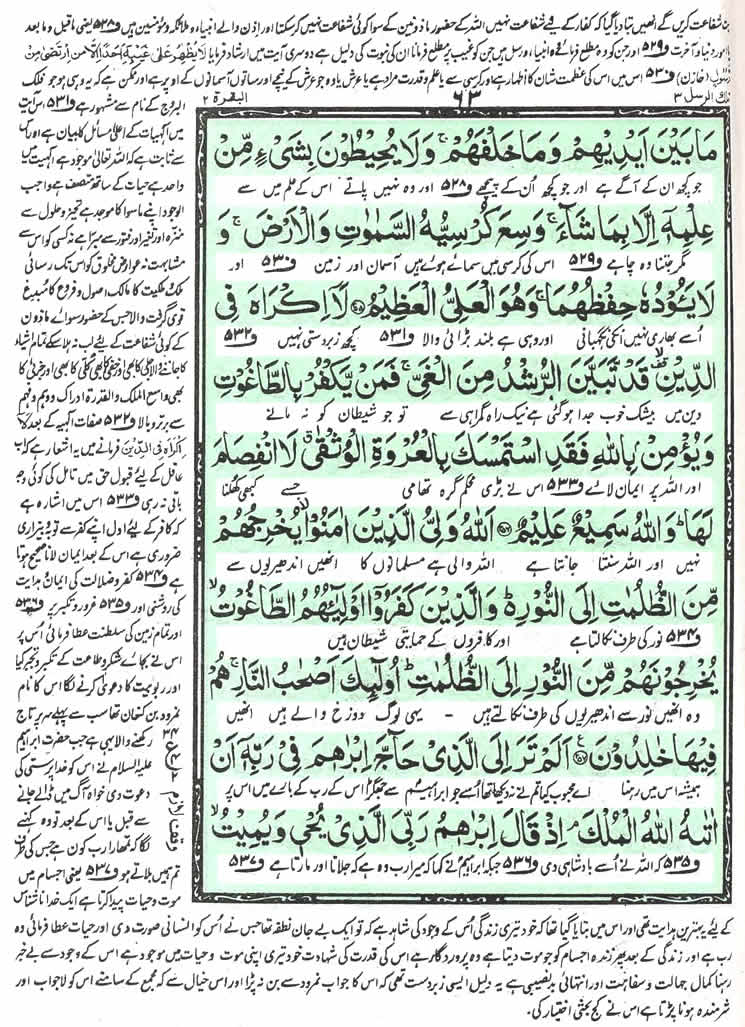 بن شفاعت کریں گے انھیں بتادیا گیا کہ کفار کے لیے شفاعت نہیں اللہ کے حضور ماذونین کے سوا کوئی شفاعت نہیں کرسکتا اور اذن والے انبیاء و ملائکہ و مومنین ہیں و۵۲۸ یعنی ماقبل و مابعد
یا امور دنیا و آخرت و۵۲۹ اور جن کو وہ مطلع فرمائے وہ انبیاء و رسل ہیں جن کو غیب پر مطلع فرمانا ان کی نبوت کی دلیل ہے دوسری آیت میں ارشاد فرمایا لَا يُظْهِرُ عَلٰى غَيْبِهٖٓ اَحَدًا اِلَّا مَنِ ارْتَضٰى مِنْ
رَّسُوْلٍ (خازن) و۵۳۰ اس میں اس کی عظمت شان کا اظہار ہے اور کرسی سے یا علم و قدرت مراد ہے یا عرش یا وہ جو عرش کے نیچے اور ساتوں آسمانوں کے اوپر ہے اور ممکن ہے کہ یہ وہی ہو جو فلک
تلك الرسل ٣
٦٣
البقرة ٢
مَا بَيْنَ اَيْدِيْهِمْ وَمَا خَلْفَهُمْ ۚ وَلَا يُحِيْطُوْنَ بِشَيْءٍ مِّنْ
جو کچھ ان کے آگے ہے اور جو کچھ اُن کے پیچھے و۵۲۸ اور وہ نہیں پاتے اس کے علم میں سے
عِلْمِهٖٓ اِلَّا بِمَا شَآءَ ۚ وَسِعَ كُرْسِيُّهُ السَّمٰوٰتِ وَالْاَرْضَ ۚ وَ
مگر جتنا وہ چاہے و۵۲۹ اس کی کرسی میں سمائے ہوئے ہیں آسمان اور زمین و۵۳۰ اور
لَا يَـُٔوْدُهٗ حِفْظُهُمَا ۚ وَهُوَ الْعَلِيُّ الْعَظِيْمُ ۝۲۵۵ لَآ اِكْرَاهَ فِي
اُسے بھاری نہیں انکی نگہبانی اور وہی ہے بلند بڑائی والا و۵۳۱ کچھ زبردستی نہیں و۵۳۲
الدِّيْنِ ۙ قَدْ تَّبَيَّنَ الرُّشْدُ مِنَ الْغَيِّ ۚ فَمَنْ يَّكْفُرْ بِالطَّاغُوْتِ
دین میں بیشک خوب جدا ہوگئی ہے نیک راہ گمراہی سے تو جو شیطان کو نہ مانے
وَيُؤْمِنْۢ بِاللّٰهِ فَقَدِ اسْتَمْسَكَ بِالْعُرْوَةِ الْوُثْقٰى ۗ لَا انْفِصَامَ
اور اللہ پر ایمان لائے و۵۳۳ اس نے بڑی محکم گرہ تھامی جسے کبھی کھلنا
لَهَا ۭ وَاللّٰهُ سَمِيْعٌ عَلِيْمٌ ۝۲۵۶ اَللّٰهُ وَلِيُّ الَّذِيْنَ اٰمَنُوْا ۙ يُخْرِجُهُمْ
نہیں اور اللہ سنتا جانتا ہے اللہ والی ہے مسلمانوں کا انھیں اندھیریوں سے
مِّنَ الظُّلُمٰتِ اِلَى النُّوْرِ ۭ وَالَّذِيْنَ كَفَرُوْٓا اَوْلِيٰٓئُهُمُ الطَّاغُوْتُ ۙ
و۵۳۴ نور کی طرف نکالتا ہے اور کافروں کے حمایتی شیطان ہیں
يُخْرِجُوْنَهُمْ مِّنَ النُّوْرِ اِلَى الظُّلُمٰتِ ۭ اُولٰٓئِكَ اَصْحٰبُ النَّارِ ۚ هُمْ
وہ انھیں نور سے اندھیریوں کی طرف نکالتے ہیں - یہی لوگ دوزخ والے ہیں انھیں
فِيْهَا خٰلِدُوْنَ ۝۲۵۷ اَلَمْ تَرَ اِلَى الَّذِيْ حَآجَّ اِبْرٰهٖمَ فِيْ رَبِّهٖٓ اَنْ
ہمیشہ اس میں رہنا اے محبوب کیا تم نے نہ دیکھا تھا اُسے جو ابراہیم سے جھگڑا اس کے رب کے بارے میں اس پر
اٰتٰىهُ اللّٰهُ الْمُلْكَ ۘ اِذْ قَالَ اِبْرٰهٖمُ رَبِّيَ الَّذِيْ يُحْيٖ وَيُمِيْتُ ۙ
و۵۳۵ کہ اللہ نے اُسے بادشاہی دی و۵۳۶ جبکہ ابراہیم نے کہا کہ میرا رب وہ ہے کہ جلاتا اور مارتا ہے و۵۳۷
البروج کے نام سے مشہور ہے و۵۳۱ اس آیت
میں الٰہیات کے اعلیٰ مسائل کا بیان ہے اور اس
سے ثابت ہے کہ اللہ تعالیٰ موجود ہے الٰہیت میں
واحد ہے حیات کے ساتھ متصف ہے واجب
الوجود اپنے ماسوا کا موجد ہے تحیز و حلول سے
منزہ اور تغیر اور فتور سے مبرا ہے نہ کسی کو اس سے
مشابہت نہ عوارض مخلوق کو اس تک رسائی
ملک و ملکوت کا مالک اصول و فروع کا مبدع
قوی گرفت والا جس کے حضور سوائے ماذون
کے کوئی شفاعت کے لیے لب نہ ہلا سکے تمام اشیاء
کا جاننے والا جلی کا بھی اور خفی کا بھی کلی کا بھی اور جزئی کا
بھی واسع الملک والقدرۃ ادراک و وہم و فہم
سے برتر و بالا و۵۳۲ صفات الٰہیہ کے بعد لَآ
اِكْرَاهَ فِي الدِّيْنِ فرمانے میں یہ اشعار ہے کہ اب
عاقل کے لیے قبول حق میں تامل کی کوئی وجہ
باقی نہ رہی و۵۳۳ اس میں اشارہ ہے
کہ کافر کے لیے اول اپنے کفر سے توبہ و بیزاری
ضروری ہے اس کے بعد ایمان لانا صحیح ہوتا
ہے و۵۳۴ کفر و ضلالت کی ایمان و ہدایت
کی روشنی اور و۵۳۵ غرور و تکبر پر و۵۳۶
اور تمام زمین کی سلطنت عطا فرمائی اس پر
اس نے بجائے شکر و طاعت کے تکبر و تجبر کیا
اور ربوبیت کا دعویٰ کرنے لگا اس کا نام
نمرود بن کنعان تھا سب سے پہلے سر پر تاج
رکھنے والا یہی ہے جب حضرت ابراہیم
علیہ السلام نے اس کو خدا پرستی کی
دعوت دی خواہ آگ میں ڈالے جانے
سے قبل یا اس کے بعد تو وہ کہنے
لگا کہ تمھارا رب کون ہے جس کی طرف
تم ہمیں بلاتے ہو و۵۳۷ یعنی اجسام میں
موت و حیات پیدا کرتا ہے ایک خدا ناشناس
٣٤
ع
٢
وقف لازم
کے لیے یہ بہترین ہدایت تھی اور اس میں بتایا گیا تھا کہ خود تیری زندگی اُس کے وجود کی شاہد ہے کہ تو ایک بے جان نطفہ تھا جس نے اُس کو انسانی صورت دی اور حیات عطا فرمائی وہ
رب ہے اور زندگی کے بعد پھر زندہ اجسام کو جو موت دیتا ہے وہ پروردگار ہے اس کی قدرت کی شہادت خود تیری اپنی موت و حیات میں موجود ہے اس کے وجود سے بے خبر
رہنا کمال جہالت و سفاہت اور انتہائی بدنصیبی ہے یہ دلیل ایسی زبردست تھی کہ اس کا جواب نمرود سے بن نہ پڑا اور اس خیال سے کہ مجمع کے سامنے اس کو لاجواب اور
شرمندہ ہونا پڑتا ہے اس نے کج بحثی اختیار کی۔